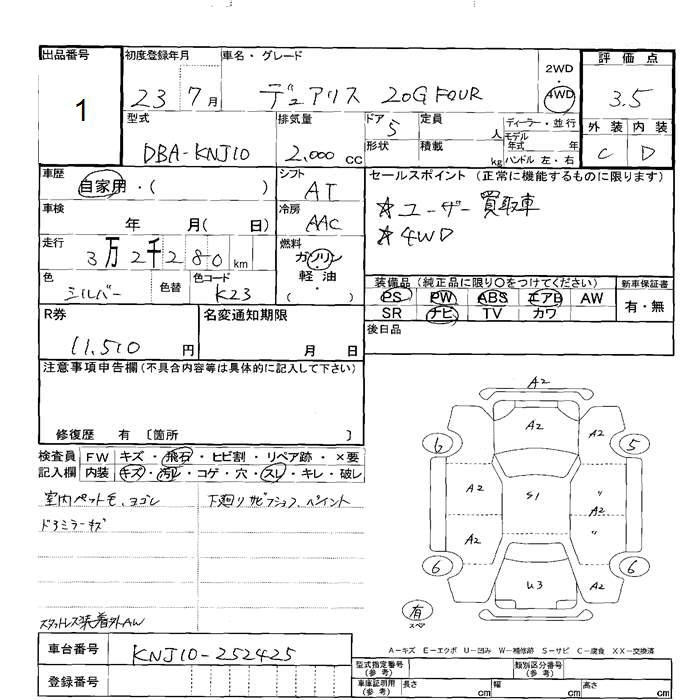 出品番号 初度登録年月 車名・グレード 2WD 評価点
1 23 7月 デュアリス 20G FOUR 4WD 3.5
型式 排気量 ドア 定員 ディーラー・並行 外装 内装
DBA-KNJ10 2,000 cc 5 人 モデル年式 年 C D
形状 積載 kg ハンドル 左・右
車歴 シフト セールスポイント (正常に機能するものに限ります)
自家用・( ) AT ☆ユーザー買取車
車検 冷房 ☆4WD
年 月( 日) AAC
走行 燃料
3万2千280 km ガソリン
軽・油
( )
色 色替 色コード 装備品 (純正品に限り○をつけてください) 新車保証書
シルバー K23 PS PW ABS エアB AW 有・無
SR ナビ TV カワ
R券 名変通知期限 後日品
11,510 円 月 日
注意事項申告欄(不具合内容等は具体的に記入して下さい)
修復歴 有 〔箇所 〕
検査員 FW キズ・飛石・ヒビ割・リペア跡・×要
記入欄 内装 キズ・汚レ・コゲ・穴・スレ・キレ・破レ
室内ペットモ、ヨゴレ 下廻リサビ
ドアミラーキズ
スタットレス装着外AW
A2
A2
6 5
A2 S1 〃
A2
A2 〃
6 U3 A2 6
有
スペア
A-キズ E-エクボ U-凹み W-補修跡 S-サビ C-腐食 XX-交換済
車台番号 KNJ10-252425
登録番号
型式指定番号(参考) 類別区分番号(参考)
車庫証明用(参考) 長さ cm 幅 cm 高さ cm